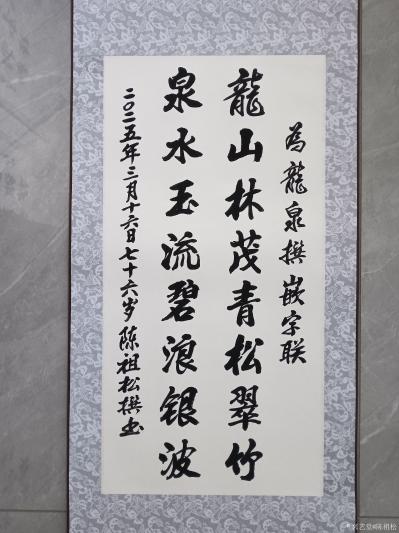 为龍泉撰嵌字联
龍山林茂青松翠竹
泉水玉流碧浪银波
二〇二五年三月十六日七十六岁陈祖松撰书